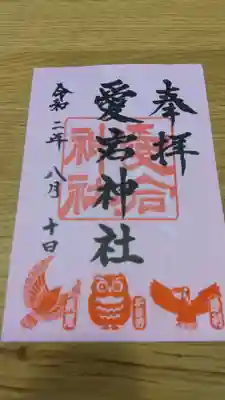 奉拝
愛宕神社
令和二年 八月 十日